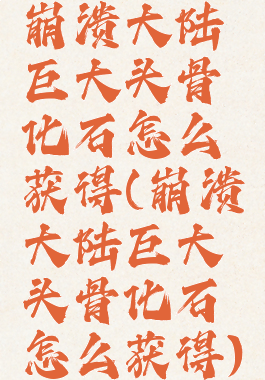 崩溃大陆
巨大头骨
化石怎么
获得(崩溃
大陆巨大
头骨化石
怎么获得)